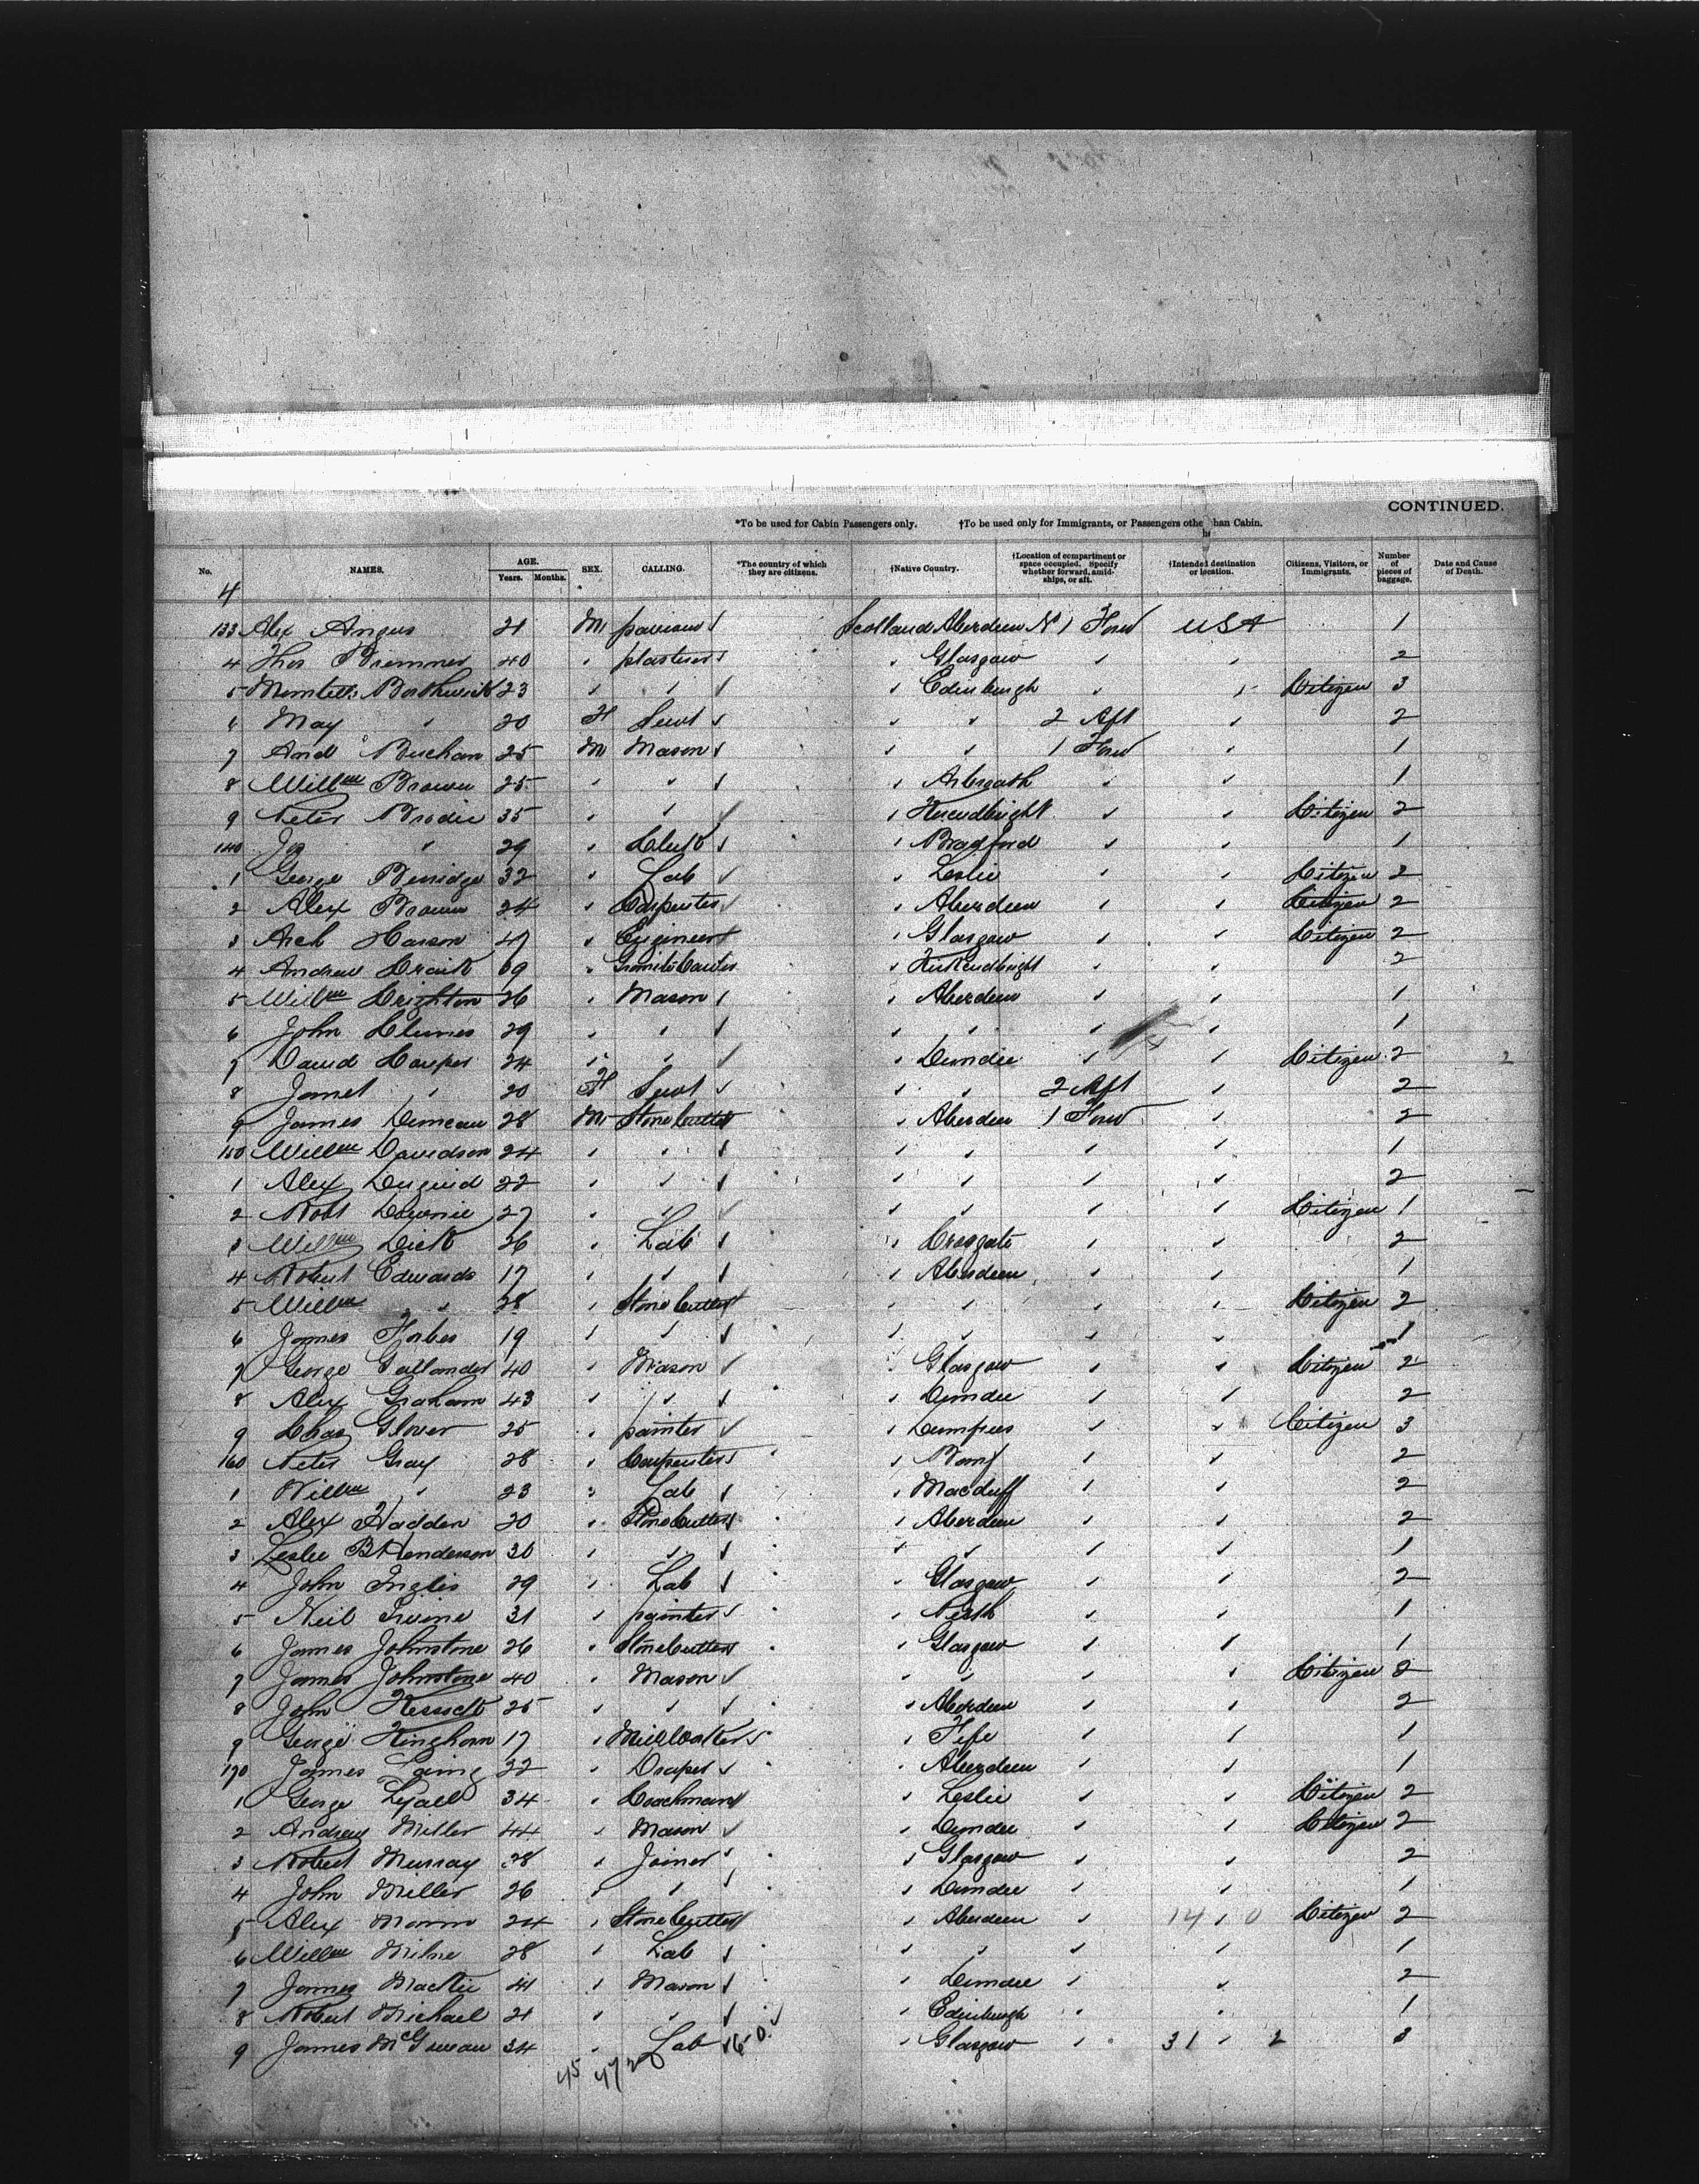 CONTINUED.
*To be used for Cabin Passengers only. †To be used only for Immigrants, or Passengers othe han Cabin.
No. NAMES. AGE. Years. Months. SEX. CALLING. *The country of which they are citizens. †Native Country. †Location of compartment or space occupied. Specify whether forward, amidships, or aft. †Intended destination or location. Citizens, Visitors, or Immigrants. Number of pieces of baggage. Date and Cause of Death.
4
133 Alex Angus 21 M Scotland Aberdeen No 1 Forw USA 1
4 Thos Bremner 40 plasterer Glasgow 2
5 Borthwick 23 Edinburgh Citizen 3
6 May 20 F Servt 2 Aft 2
7 And Buchan 25 M Mason 1 Forw 1
8 Willm Brown 25 Arbroath 1
9 Peter Brodie 35 Citizen 2
140 Jos 29 Clerk Bradford 1
1 George Berridge 32 Lab Leslie Citizen 2
2 Alex Brown 24 Carpenter Aberdeen Citizen 2
3 Arch Carson 47 Engineer Glasgow Citizen 2
4 Andrew Craik 69 Granite Cutter Kirkcudbright 2
5 Willm Crighton 26 Mason Aberdeen 1
6 John 29 1
7 David Cowper 24 Dundee Citizen 2
8 Janet 20 F Servt 2 Aft 2
9 James Duncan 28 M Stone Cutter Aberdeen 1 Forw 2
150 Willm Davidson 24 1
1 Alex Duguid 22 2
2 Robt Downie 27 Citizen 1
3 Willm Dick 26 Lab Crosgate 2
4 Robert Edwards 17 Aberdeen 1
5 Willm 28 Stone Cutter Citizen 2
6 James Forbes 19 1
7 George Gallander 40 Mason Glasgow Citizen 2
8 Alex Graham 43 Dundee 2
9 Chas Glover 25 painter Dumfries Citizen 3
160 Peter Gray 28 Carpenter Banf 2
1 Willm 23 Lab Macduff 2
2 Alex Hadden 20 Stone Cutter Aberdeen 2
3 Leslie B Henderson 30 1
4 John Inglis 29 Lab Glasgow 2
5 Neil Irvine 31 painter Perth 1
6 James Johnstone 26 Stone Cutter Glasgow 1
7 James Johnstone 40 Mason Citizen 2
8 John 25 Aberdeen 2
9 George Kinghorn 17 Millworker Fife 1
170 James Laing 22 Draper Aberdeen 1
1 George Lyall 34 Coachman Leslie Citizen 2
2 Andrew Miller 44 Mason Dundee Citizen 2
3 Robert Murray 28 Joiner Glasgow 2
4 John Miller 26 Dundee 1
5 Alex 24 Stone Cutter Aberdeen 14 0 Citizen 2
6 Willm Milne 28 Lab 1
7 James Mackie 41 Mason Dundee 2
8 Robert Michael 21 Edinburgh 1
9 James 34 Lab Glasgow 31 2 3
45 47 2